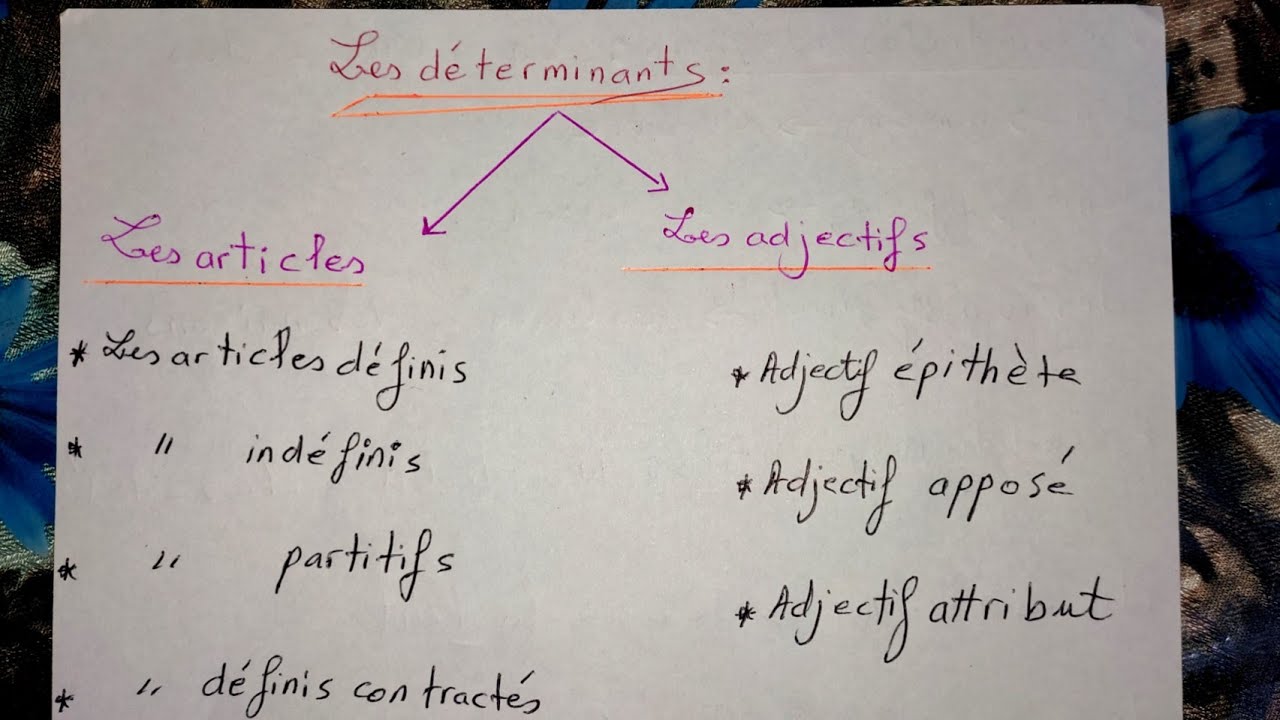 Les déterminants :
Les articles
* Les articles définis
* " indéfinis
* " partitifs
* " définis contractés
Les adjectifs
* Adjectif épithète
* Adjectif apposé
* Adjectif attribut